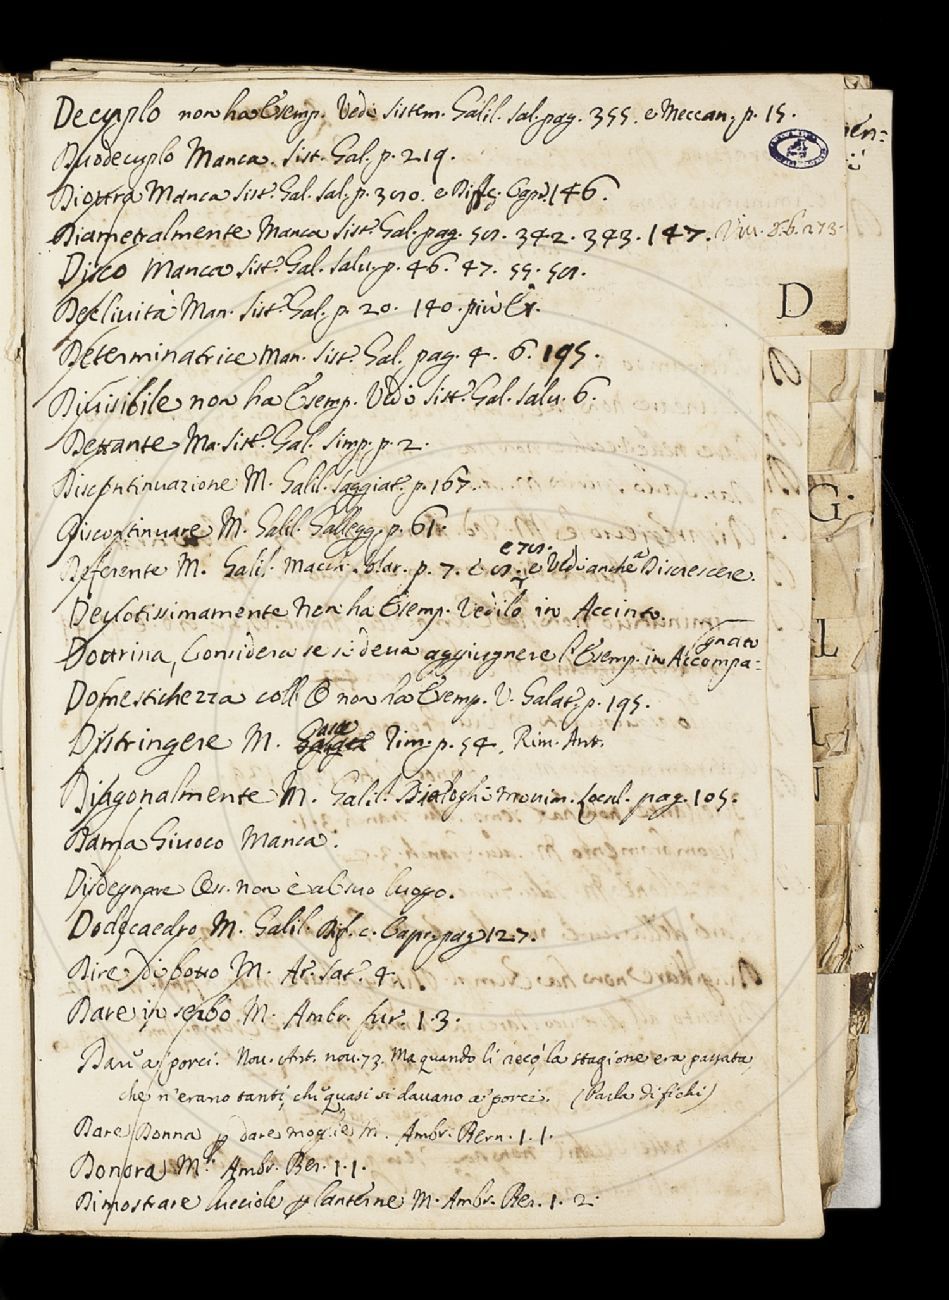 Decuplo non ha Esemp. Vedi sistem. Galil. Sal. pag. 355. e Meccan. p. 15.
Duodecuplo Manca. Sist. Gal. p. 219.
Diottra Manca Sist. Gal. Sal. p. e Dif. c. Capr. 146.
Diametralmente Manca Sist. Gal. pag. 342. 343. 147. Viv. 273.
Disco Manca Sist. Gal. Salu. p. 46. 47. 55.
D
Decliuità Man. Sist. Gal. p. 20. 140. più Es.
Determinatrice Man. Sist. Gal. pag. 4. 6. 195.
Diuisibile non ha Esemp. Vedi Sist. Gal. Salu. 6.
Dettante Ma. Sist. Gal. Simp. p. 2.
Discontinuazione M. Galil. Saggiat. p. 167.
G
Discontinuare M. Galil. Gallegg. p. 61.
Deferente M. Galil. Macch. Solar. p. 7. e Vedi anche Discrescere.
Deuotissimamente Non ha Esemp. Vedilo in Accinto.
Dottrina, Considera se si deua aggiugnere l'Esemp. in Accompa=
gnato
L
Domestichezza coll O non ha Esemp. V. Galat. p. 195.
Distringere M. Rim. p. 54. Rim. Ant.
Diagonalmente M. Galil. Dialoghi mouim. Local. pag. 105.
N
Dama Giuoco Manca.
Disdegnare Oss. non è al suo luogo.
Dodecaedro M. Galil. Dif. c. Capr. pag 127.
Dire Di botto M. Ar. Sat. 4.
Dare in serbo M. Ambr. fur. 1. 3.
Dare a' porci. Nou. Ant. nou. 73. Ma quando li recò, la stagione era passata,
che n'erano tanti, che quasi si dauano a' porci. (Parla di fichi)
Dare Donna p dare moglie M. Ambr. Bern. 1. 1.
Donora M. Ambr. Ber. 1. 1.
Dimostrare lucciole p lanterne M. Ambr. Ber. 1. 2.